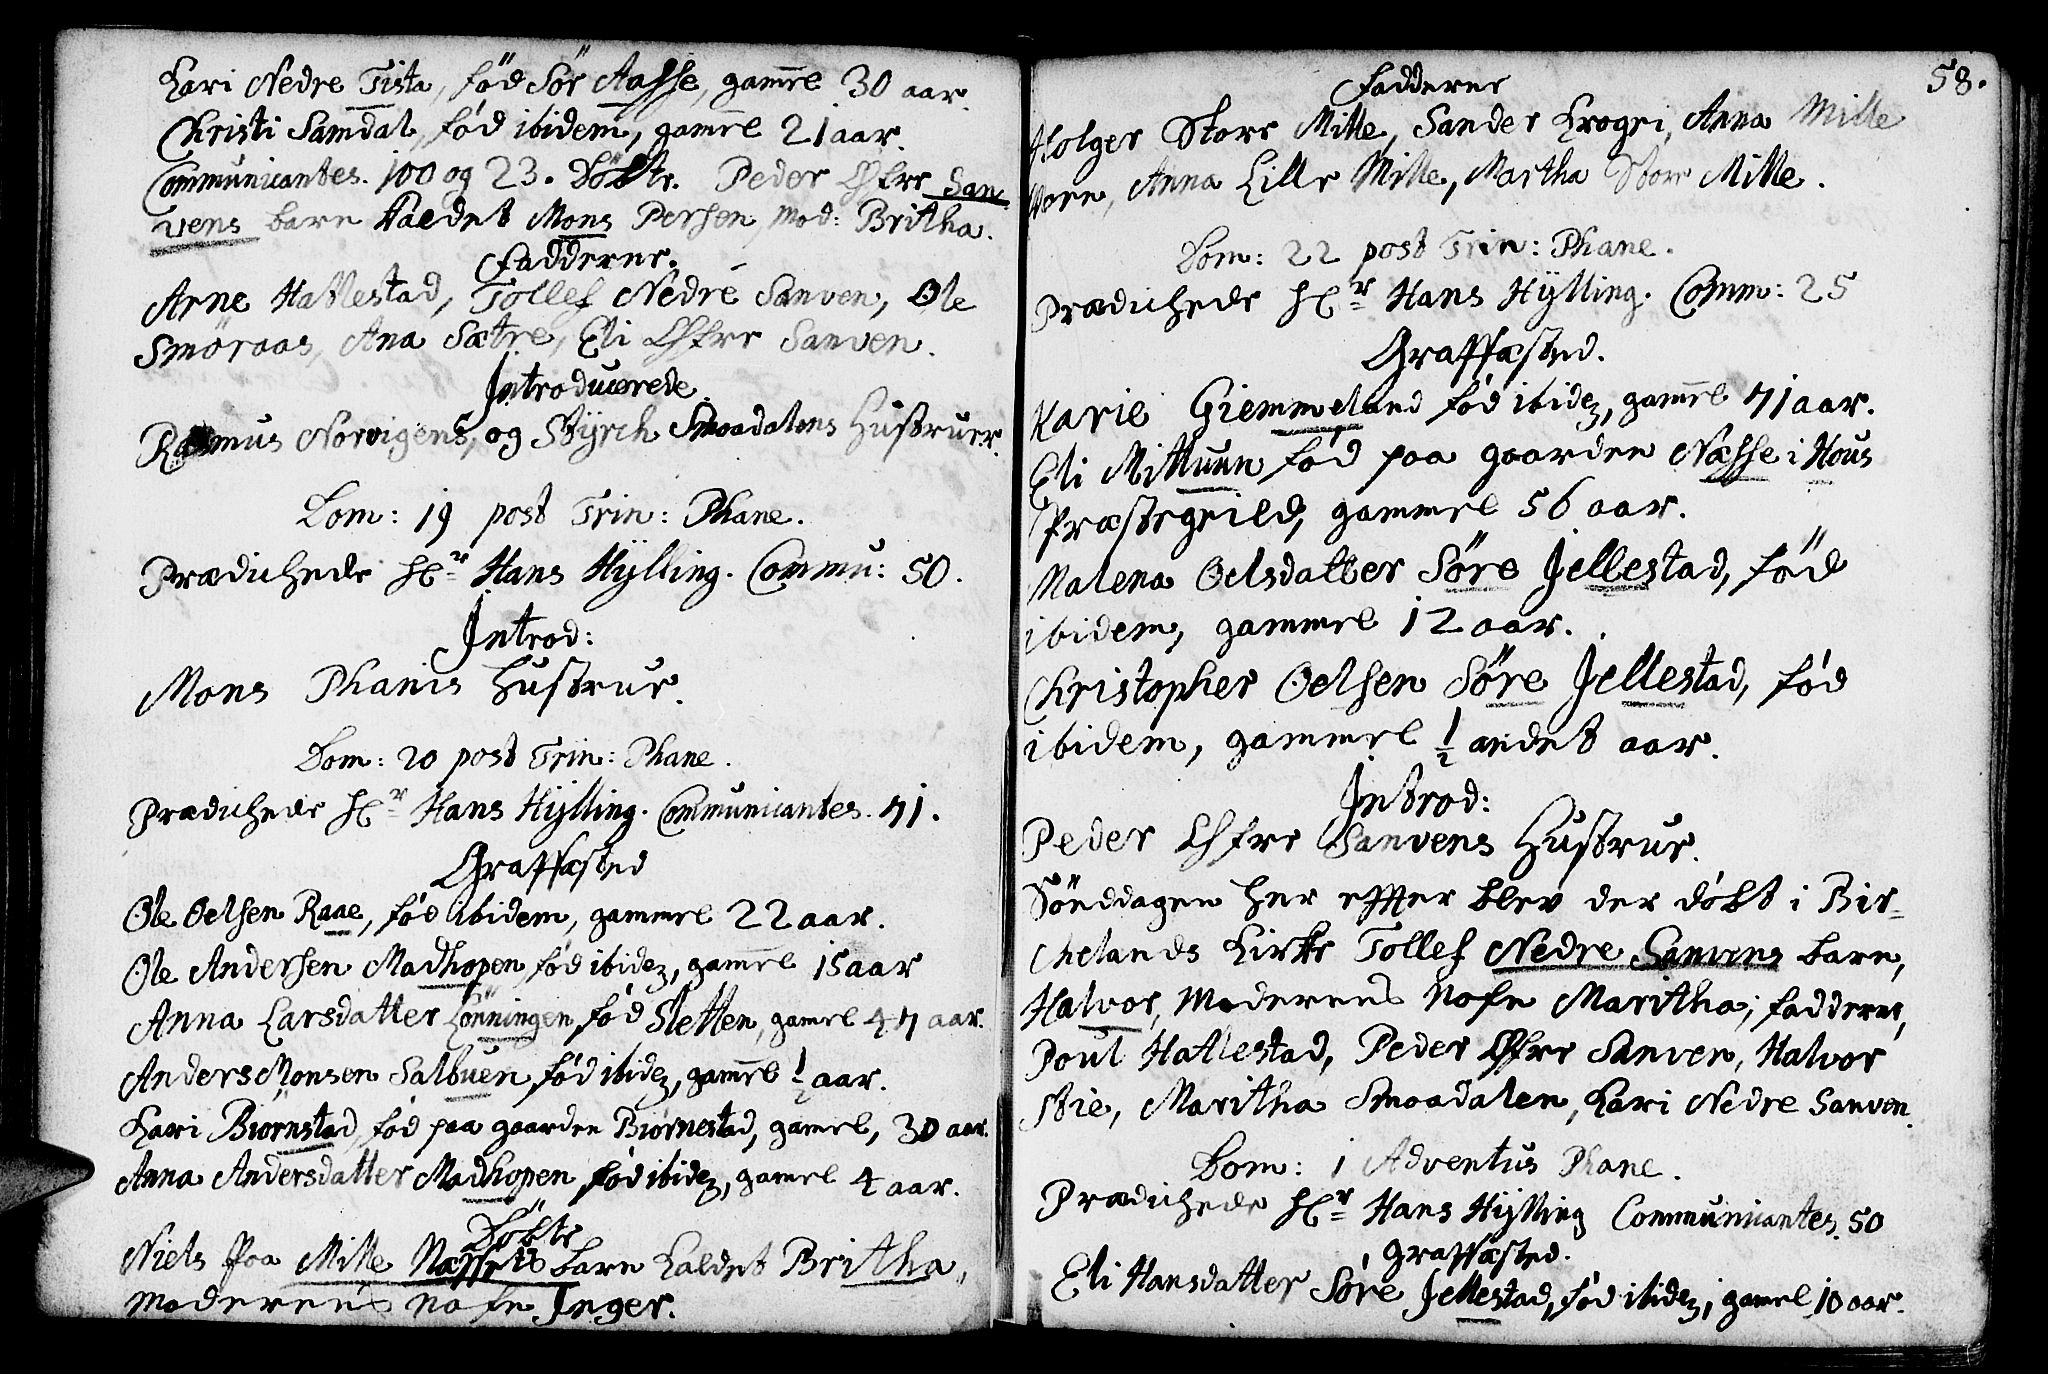 Kari Nedre Tista, fød Sör Aasse, gam̄el 30 aar.
Christi Samdal, fød ibidem, gam̄el 21 aar.
Communicantes. 100 og 23. Döbte. Peder Øfre San-
vens barn kaldet Mons Persen, Mod: Britha.
Fadderne.
Arne Hatlestad, Tollef Nedre Sanven, Ole
Smøraas, Ana Sætre, Eli Øfre Sanven.
Introducerede
Rasmus Norvigens, og Styrch Smaadalens Hustruer.
Dom: 19 post Trin: Phane.
Prædichede Hr Hans Hÿlling. Commu: 50.
Introd:
Mons Phanis Hustrue.
Dom: 20 post Trin: Phane.
Prædichede Hr Hans Hÿlling. Communicantes. 71.
Graffæsted
Ole Oelsen Raae, fød ibidem, gammel 22 aar.
Ole Andersen Madhopen, fød ibidem, gam̄el 15 aar
Anna Larsdatter Lönningen, fød Sletten, gamel 47 aar.
Anders Monsen Salbuen, fød ibidem, gam̄el ½ aar.
Kari Biørnstad, fød paa gaarden Biørnestad, gamel, 30 aar.
Anna Andersdatter Madhopen, fød ibidem, gamel 4 aar.
Döbte
Niels Paa Milde Næssets barn kaldet Britha,
Moderens Nafn Inger.
58.
Fadderne
Holger Store Milde, Sander Krogei, Anna Milde
Vern, Anna Lille Milde, Martha Store Milde.
Dom: 22 post Trin: Phane.
Prædichede Hr Hans Hÿlling. Comm: 25
Graffæsted.
Karie Giemmeland fød ibidem, gam̄el 71 aar.
Eli Mittuun fød paa gaarden Næsse i Hous
Præstegeild, gammel 56 aar.
Malena Oelsdatter Söre Jellestad, fød
ibidem, gammel 12 aar.
Christopher Oelsen Söre Jellestad, fød
ibidem, gammel ½ andet aar.
Introd:
Peder Øfre Sanvens Hustrue.
Sönddagen her effter blev der døbt i Bir-
chelands Kirke Tollef Nedre Sanvens barn,
Halvor, Moderens Nafn Maritha; fadderne,
Poul Hatlestad, Peder Øfre Sanven, Halvor
Stie, Maritha Smaadalen, Kari Nedre Sanven.
Dom: 1 Adventus Phane.
Prædichede Hr Hans Hÿlling Communicantes. 50
Graffæsted.
Eli Hansdatter Söre Jellestad, fød ibidem, gamel 10 aar.